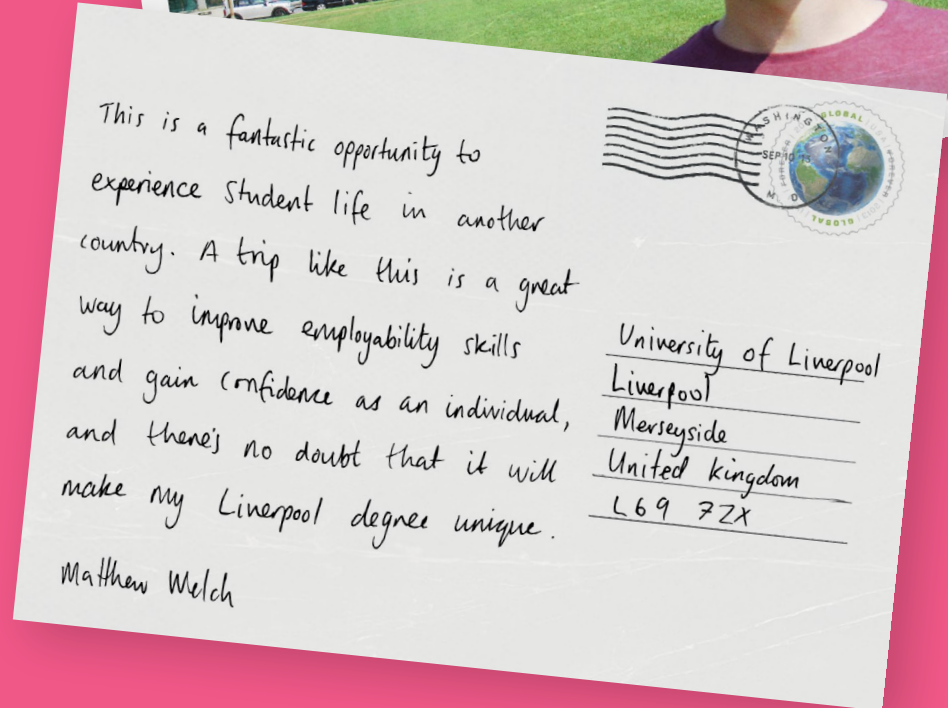 This is a fantastic opportunity to
experience student life in another
country. A trip like this is a great
way to improve employability skills
and gain confidence as an individual,
and there's no doubt that it will
make my Liverpool degree unique.
Matthew Welch
WASHINGTON
SEP 10
GLOBAL
FOREVER
GLOBAL
University of Liverpool
Liverpool
Merseyside
United kingdom
L69 7ZX